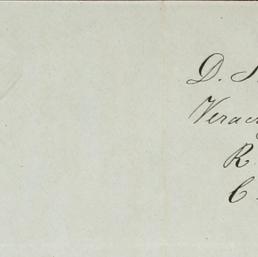 D. S
Verac
R.
C.